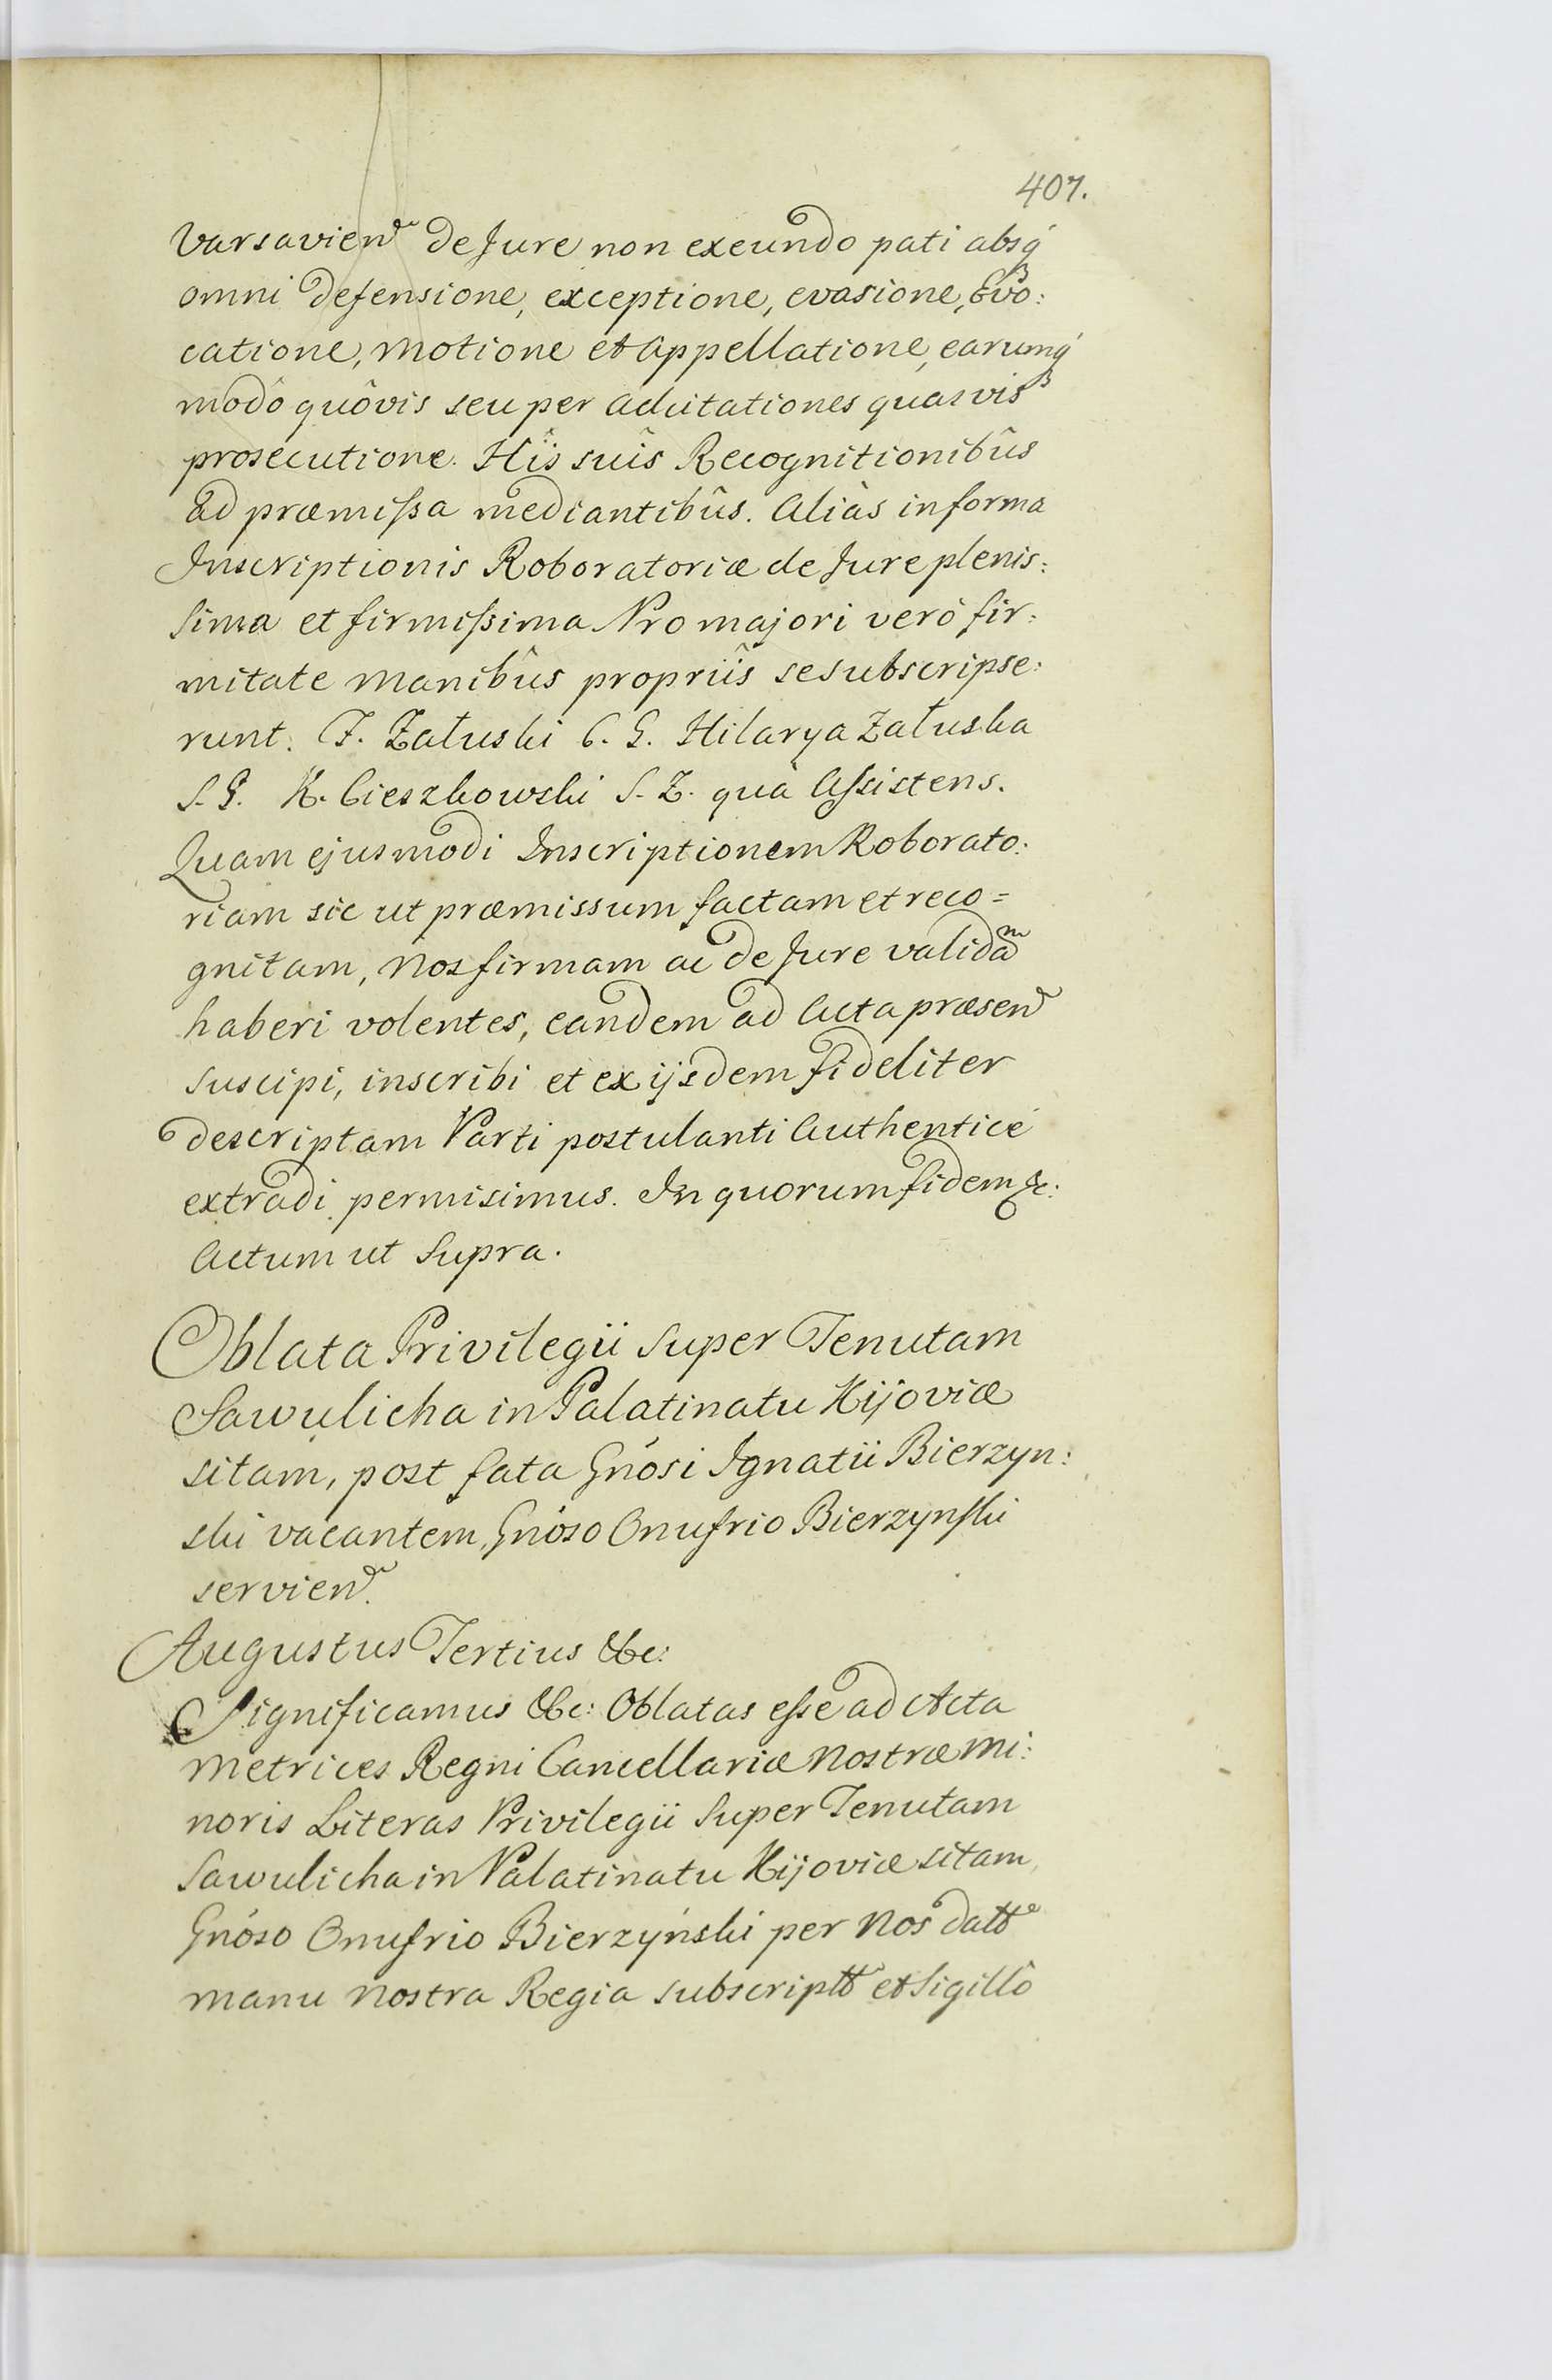 407.
Varsavien de Jure non exeundo pati absq́ꝫ
omni defensione, exceptione, evasione, Evo:
catione, motione et appellatione, earumq́ꝫ
modô quôvis seu per adcitationes quasvis
prosecutione. Hîs suîs Recognitionibûs
ad præmissa mediantibûs. Aliàs in forma
Inscriptionis Roboratoriæ de Jure plenis:
sima et firmissima Pro majori verò fir:
mitate manibûs propriîs se subscripse:
runt. J. Załuski C. G. Hilarya Załuska
S. G. K. Cieszkowski S. Z. quà Assistens.
Quam ejusmodi Inscriptionem Roborato:
riam sic ut præmissum factam et reco=
gnitam, Nos firmam ac de Jure validam
haberi volentes, eandem ad Acta præsen
suscipi, inscribi et ex ijsdem fideliter
descriptam Parti postulanti Authenticé
extradi permisimus. In quorum fidem &c:
Actum ut Supra.
Oblata Privilegii super Tenutam
Sawulicha in Palatinatu Kijoviæ
sitam, post fata Gnósi Ignatii Bierzyn:
ski vacantem, Gnóso Onufrio Bierzynski
servien.
Augustus Tertius &c:
Significamus &c: Oblatas esse ad Acta
Metrices Regni Cancellariæ Nostræ Mi:
noris Literas Privilegii super Tenutam
Sawulicha in Palatinatu Kijoviæ sitam,
Gnóso Onufrio Bierzyński per Nos datt
manu Nostra Regia subscriptt et Sigillô